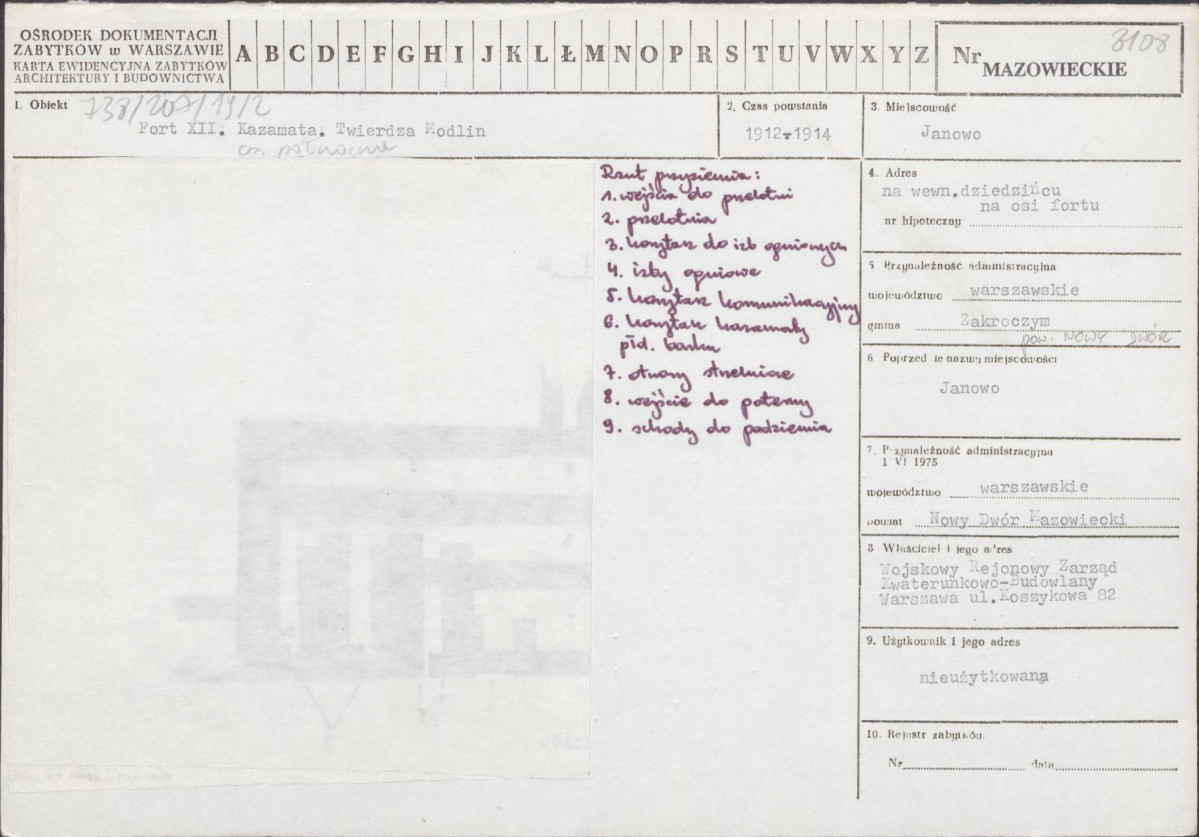 OŚRODEK DOKUMENTACJI
ZABYTKÓW w WARSZAWIE
KARTA EWIDENCYJNA ZABYTKÓW
ARCHITEKTURY I BUDOWNICTWA
A B C D E F G H I J K L Ł M N O P R S T U V W X Y Z
Nr 3108
MAZOWIECKIE
1. Obiekt 738/207/19/2
Fort XII. Kazamata. Twierdza Modlin
cz. północna
2. Czas powstania
1912-1914
3. Miejscowość
Janowo
4. Adres
na wewn.dziedzińcu
na osi fortu
nr hipoteczny
5 Przynależność administracyjna
województwo warszawskie
gmina Zakroczym
pow. NOWY DWÓR
6 Poprzednie nazwy miejscowości
Janowo
7. Przynależność administracyjna
1 VI 1975
województwo warszawskie
powiat Nowy Dwór Mazowiecki
8 Właściciel i jego adres
Wojskowy Rejonowy Zarząd
Kwaterunkowo-Budowlany
Warszawa ul.Koszykowa 82
9. Użytkownik i jego adres
nieużytkowana
10. Rejestr zabytków
Nr data
Rzut przyziemia:
1. wejścia do przelotni
2. przelotnia
3. korytarz do izb ogniowych
4. izby ogniowe
5. korytarz komunikacyjny
6. korytarz kazamaty
płd. barku
7. otwory strzelnicze
8. wejście do poterny
9. schody do podziemia